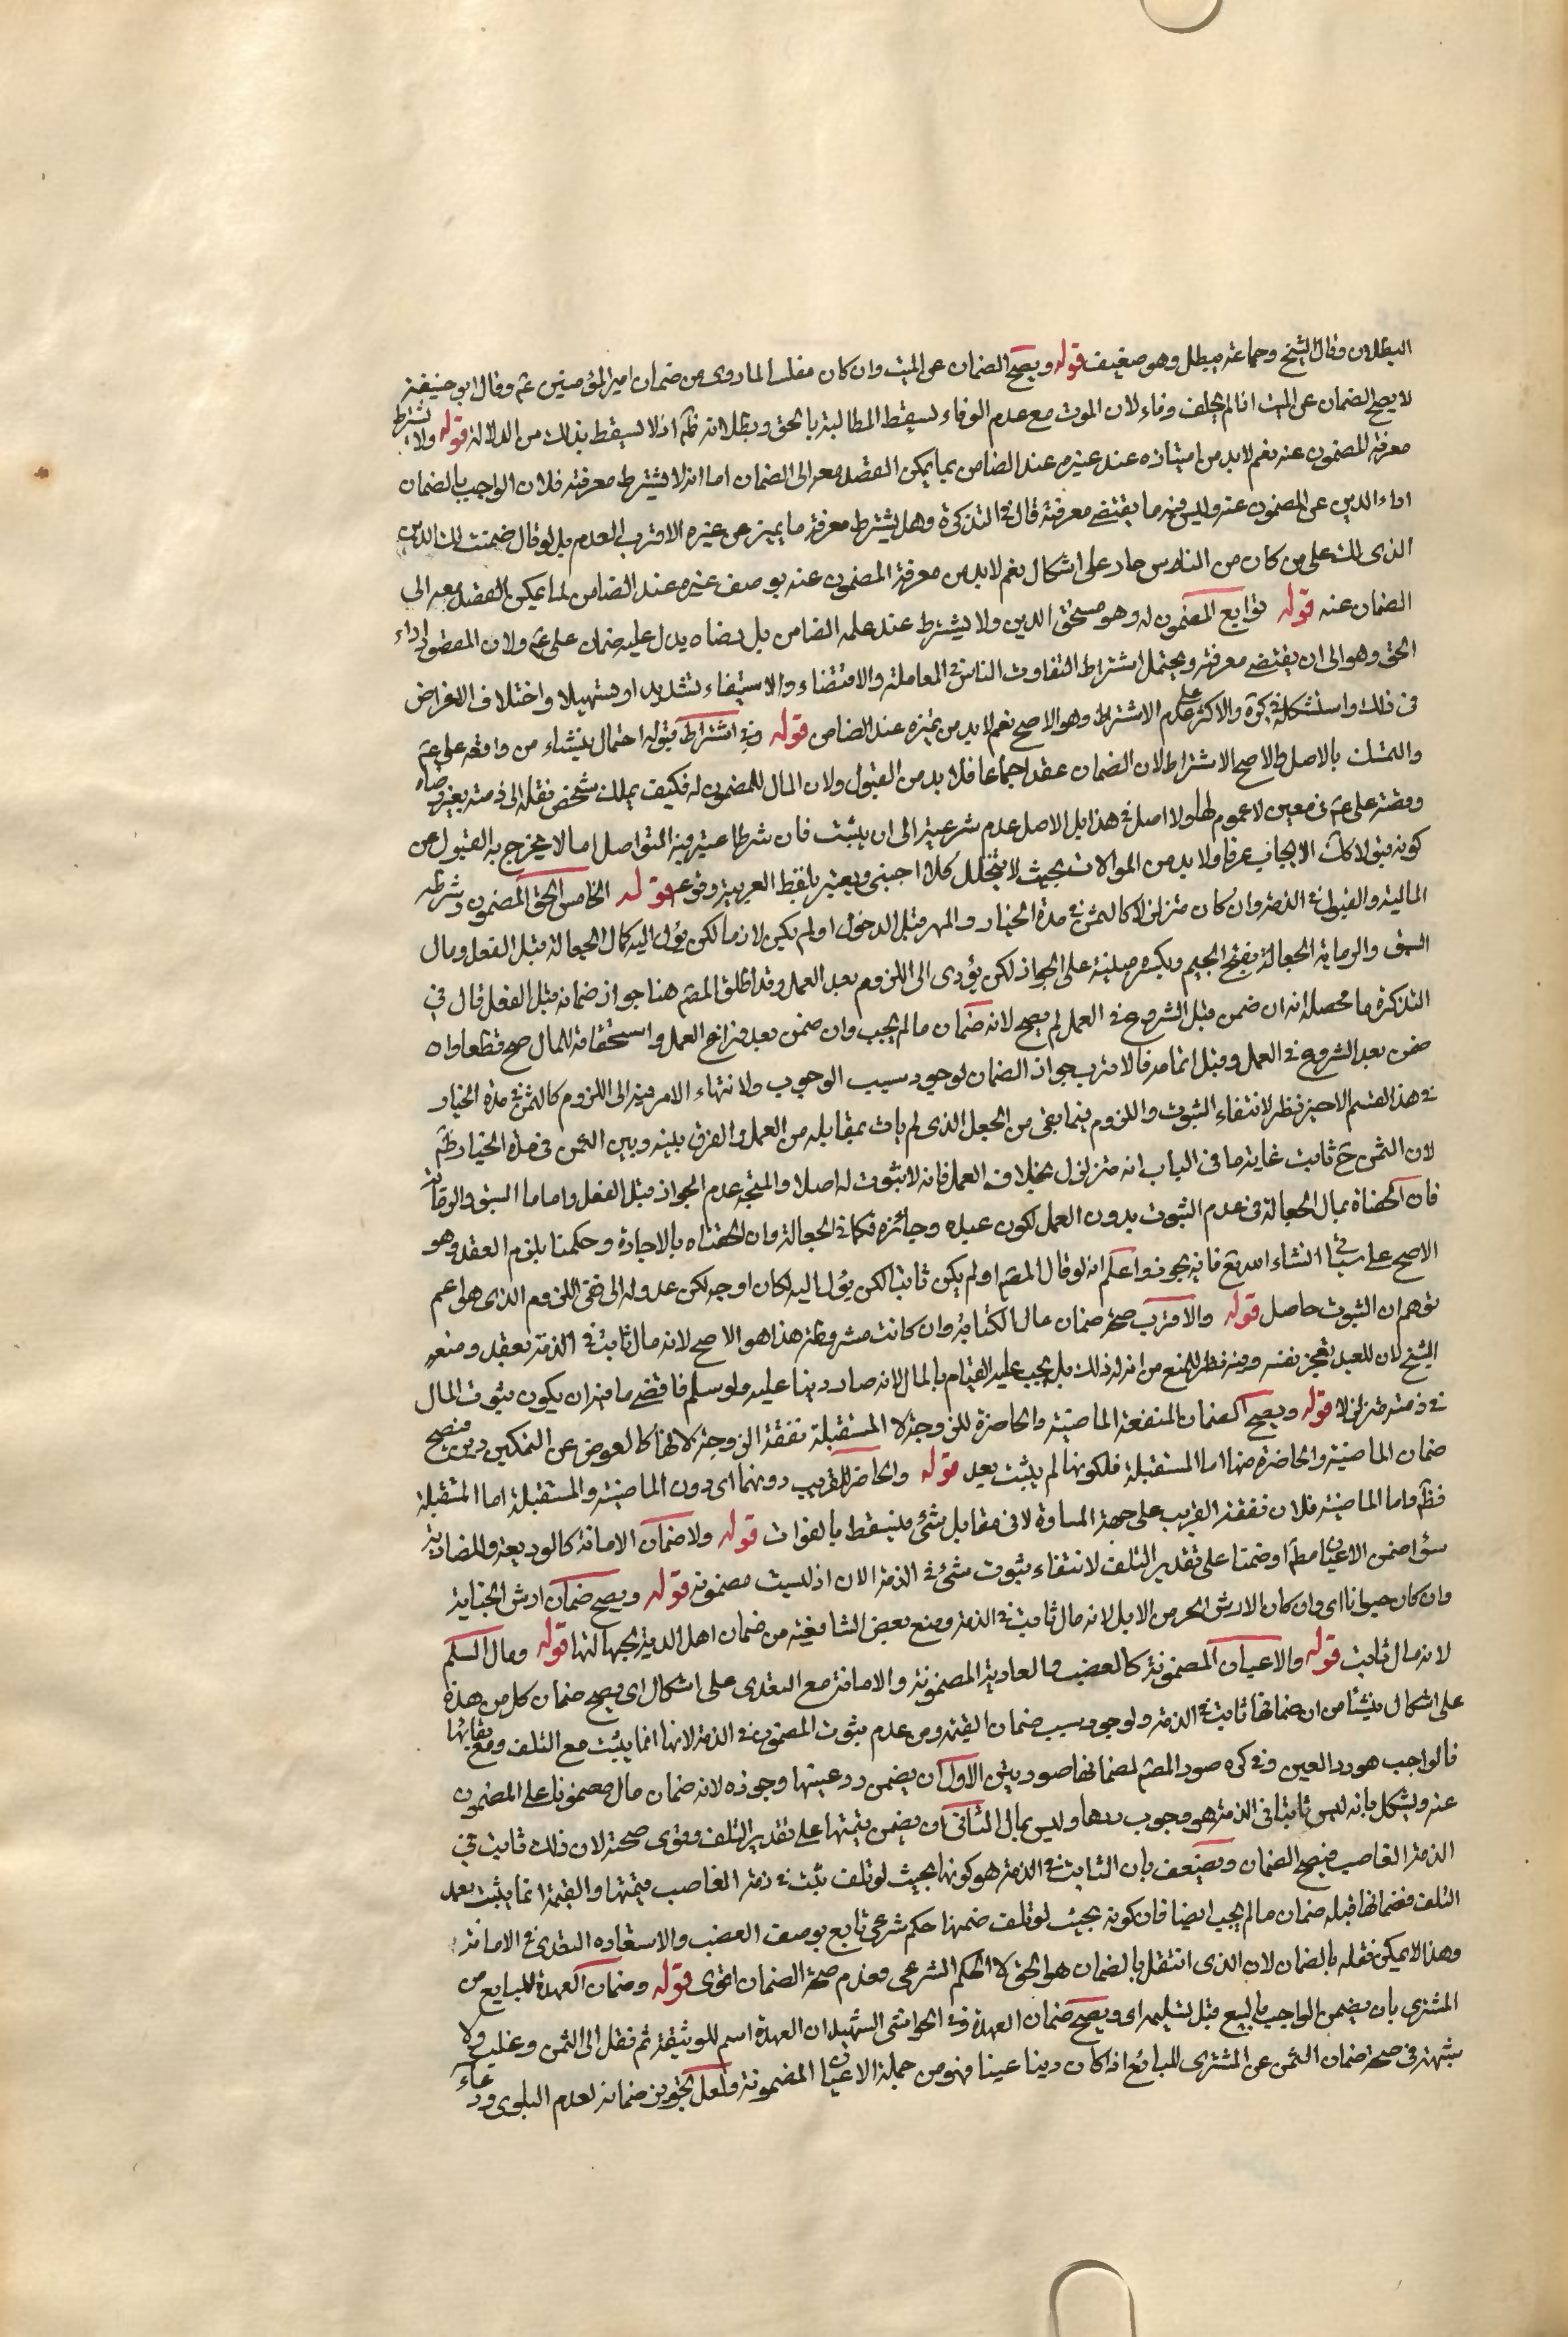 البطلان وقال الشيخ وجماعة يبطل وهو ضعيف قوله ويصح الضمان عن الميت وان كان مفلسا لما روى من ضمان امير المؤمنين عم وقال ابو حنيفة
لا يصح الضمان عن الميت اذا لم يخلف وفاء لان الموت مع عدم الوفاء يسقط المطالبة بالحق وبطلانه ظم اذ لا يسقط بذلك من الدلالة قوله ولا يشترط
معرفة المضمون عنه نعم لا بد من امتيازه عند غيره عند الضامن بما يمكن القصد معه الى الضمان اما انه لا يشترط معرفته فلان الواجب بالضمان
اداء الدين عن المضمون عنه وليس فيه ما يقتضى معرفته قال في التذكرة وهل يشترط معرفة ما يميزه عن غيره الاقرب العدم بل لو قال ضمنت لك الدين
الذى لك على من كان من الناس جاز على اشكال نعم لا بد من معرفة المضمون عنه بوصف غيره عند الضامن لما يمكن القصد معه الى
الضمان عنه قوله توابع المضمون له وهو مستحق الدين ولا يشترط عند علمه الضامن بل رضاه يدل عليه ضمان على عم ولان المقصود اداء
الحق وهو الى ان يقتضى معرفته ويحتمل اشتراط التفاوت الناس في المعاملة والاقتضاء والاستيفاء تشديدا وتسهيلا واختلاف الاغراض
في ذلك واستشكله في كرة والاكثر على عدم الاشتراط وهو الاصح نعم لا بد من تميزه عند الضامن قوله وفي اشتراط قبوله احتمال ينشاء من واقعه على عم
والتمسك بالاصل والاصح الاشتراط لان الضمان عقد اجماعا فلا بد من القبول ولان المال للمضمون له فكيف يملك شخص نقله الى ذمته بغير رضاه
وقصة على عم في معين لا عموم لها ولا اصل في هذا بل الاصل عدم شرعيته الى ان يثبت فان شرطنا عتبر فيه التواصل اما لا يخرج به القبول عن
كونه قبولا كان الايجاب عرفا ولا بد من الموالات بحيث لا يتخلل كلام اجنبى ويعتبر باللفظ العربية وقوعه قوله الخامس الحق المضمون وشرطه
المالية والقبول في الذمة وان كان متزلزلا كالثمن في مدة الخيار والمهر قبل الدخول او لم يكن لازما لكن يؤل اليه كمال الجعالة قبل الفعل ومال
السبق والرماية الجعالة بفتح الجيم ويكسر مبنية على الجواز لكن يؤدى الى اللزوم بعد العمل وقد اطلق المصم هنا جواز ضمانه قبل الفعل قال في
التذكرة ما محصله انه ان ضمن قبل الشروع في العمل لم يصح لانه ضمان ما لم يجب وان ضمن بعد فراغ العمل واستحقاقه للمال صح قطعا وان
ضمن بعد الشروع في العمل وقبل اتمامه فالاقرب جواز الضمان لوجود سبب الوجوب ولانتهاء الامر فيه الى اللزوم كالثمن في مدة الخيار
في هذا القسم الاخير نظر لانتفاء الثبوت واللزوم فيما بقى من الجعل الذى لم يات بمقابله من العمل والفرق بينه وبين الثمن في مدة الخيار ظم
لان الثمن ح ثابت غاية ما في الباب انه متزلزل بخلاف العمل فانه لا ثبوت له اصلا والمتجه عدم الجواز قبل الفعل واما ما السبق والرماية
فان الحقناه بمال الجعالة في عدم الثبوت بدون العمل لكون عبده وجائزه فكما في الجعالة وان الحقناه بالاجارة وحكمنا بلزوم العقد وهو
الاصح على سيأتي انشاء الله تع فانه يجوز واعلم انه لو قال المصم او لم يكن ثابتا لكن يؤل اليه لكان اوجه لكن عدوله الى نفى اللزوم الذى هو اعم
توهم ان الثبوت حاصل قوله والاقرب صحة ضمان مال الكتابة وان كانت مشروطة هذا هو الاصح لانه مال ثابت في الذمة بعقد ومنعه
الشيخ لان للعبد تعجيز نفسه وفيه نظر للمنع من انه له ذلك بل يجب عليه القيام بالمال لانه صار دينا عليه ولو سلم فاقصى ما فيه ان يكون ثبوت المال
في ذمته متزلزلا قوله ويصح الضمان المنفعة الماضية والحاضرة للزوجة لا المستقبلة نفقة الزوجة لانها كالعوض عن التمكين دين فيصح
ضمان الماضية والحاضرة منها اما المستقبلة فلكونها لم يثبت بعد قوله والحاضر للقريب دونهما اى دون الماضية والمستقبلة اما المستقبلة
فظم واما الماضية فلان نفقة القريب على جهة المساوة لا في مقابل شئ فيسقط بالفوات قوله ولا ضمان الامانة كالوديعة والمضاربة
سؤا ضمن الاعيان مطم او ضمنا على تقدير التلف لانتفاء ثبوت شئ في الذمة الان اذ ليست مضمونة قوله ويصح ضمان ارش الجناية
وان كان حيوانا اى وان كان الارش الحر من الابل لانه مال ثابت في الذمة ومنع بعض الشافعية من ضمان اهل الدية لجهالتها قوله ومال السلم
لانه مال ثابت قوله والاعيان المضمونة كالغصب والعارية المضمونة والامانة مع التعدى على اشكال اى ويصح ضمان كل من هذه
على اشكال ينشأ من ان ضمانها ثابت في الذمة ولوجود سبب ضمان القيمة ومن عدم ثبوت المضمون في الذمة لانها انما يثبت مع التلف ومع بقائها
فالواجب هو رد العين وفي كره صور المصم لضمانها صورتين الاول ان يضمن رد عينها وجوزه لانه ضمان مال مضمون على المضمون
عنه ويشكل بانه ليس ثابتا في الذمة هو وجوب ردها وليس بمال الثانى ان يضمن قيمتها على تقدير التلف وقوى صحته لان ذلك ثابت في
الذمة الغاصب فيصح الضمان ويضعف بان الثابت في الذمة هو كونها بحيث لو تلف يثبت في ذمة الغاصب قيمتها والقيمة انما يثبت بعد
التلف فضمانها قبله ضمان ما لم يجب ايضا فان كونه بحيث لو تلف ضمنها حكم شرعى تابع بوصف الغصب والاستعاده التعدى في الامانة
وهذا لا يمكن نقله بالضمان لان الذى انتقل بالضمان هو الحق لا الحكم الشرعى فعدم صحة الضمان اقوى قوله وضمان العهدة للبايع من
المشترى بان يضمن الواجب بالبيع قبل تسليمه اى ويصح ضمان العهدة في الحواشى الشهيد ان العهدة اسم للوثيقة ثم نقل الى الثمن وغلب ولا
شبهة في صحة ضمان الثمن عن المشترى للبائع اذا كان دينا عينا فهو من جملة الاعيان المضمونة ولعل تجويز ضمانه لعدم البلوى ودعاء